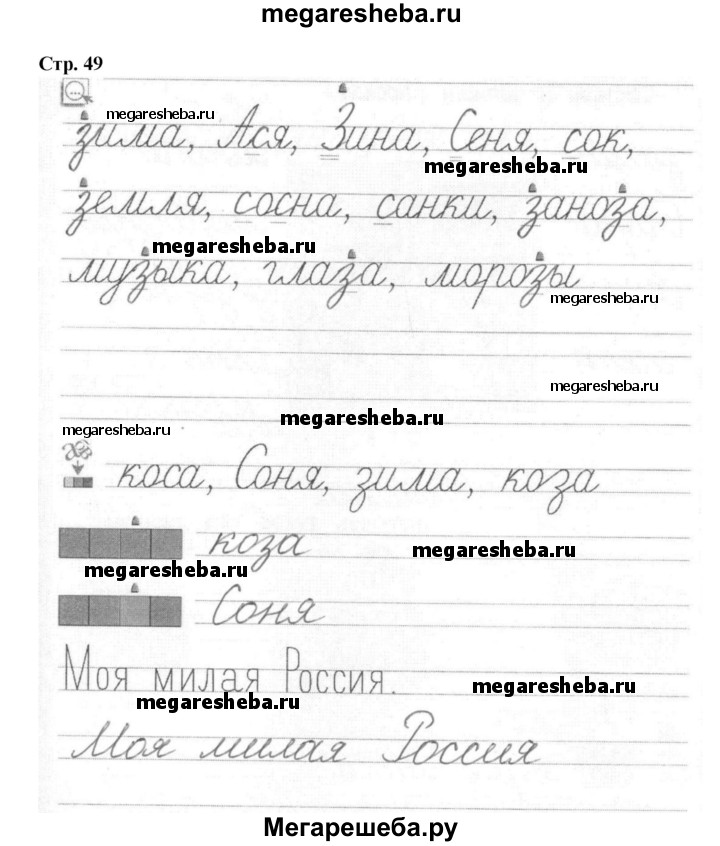 megaresheba.ru
Стр. 49
megaresheba.ru
зима, Ася, Зина, Сеня, сок,
megaresheba.ru
земля, сосна, санки, заноза,
megaresheba.ru
музыка, глаза, морозы
megaresheba.ru
megaresheba.ru
megaresheba.ru
megaresheba.ru
коса, Соня, зима, коза
коза
megaresheba.ru
megaresheba.ru
Соня
Моя милая Россия.
megaresheba.ru
megaresheba.ru
Моя милая Россия
Мегарешеба.ру